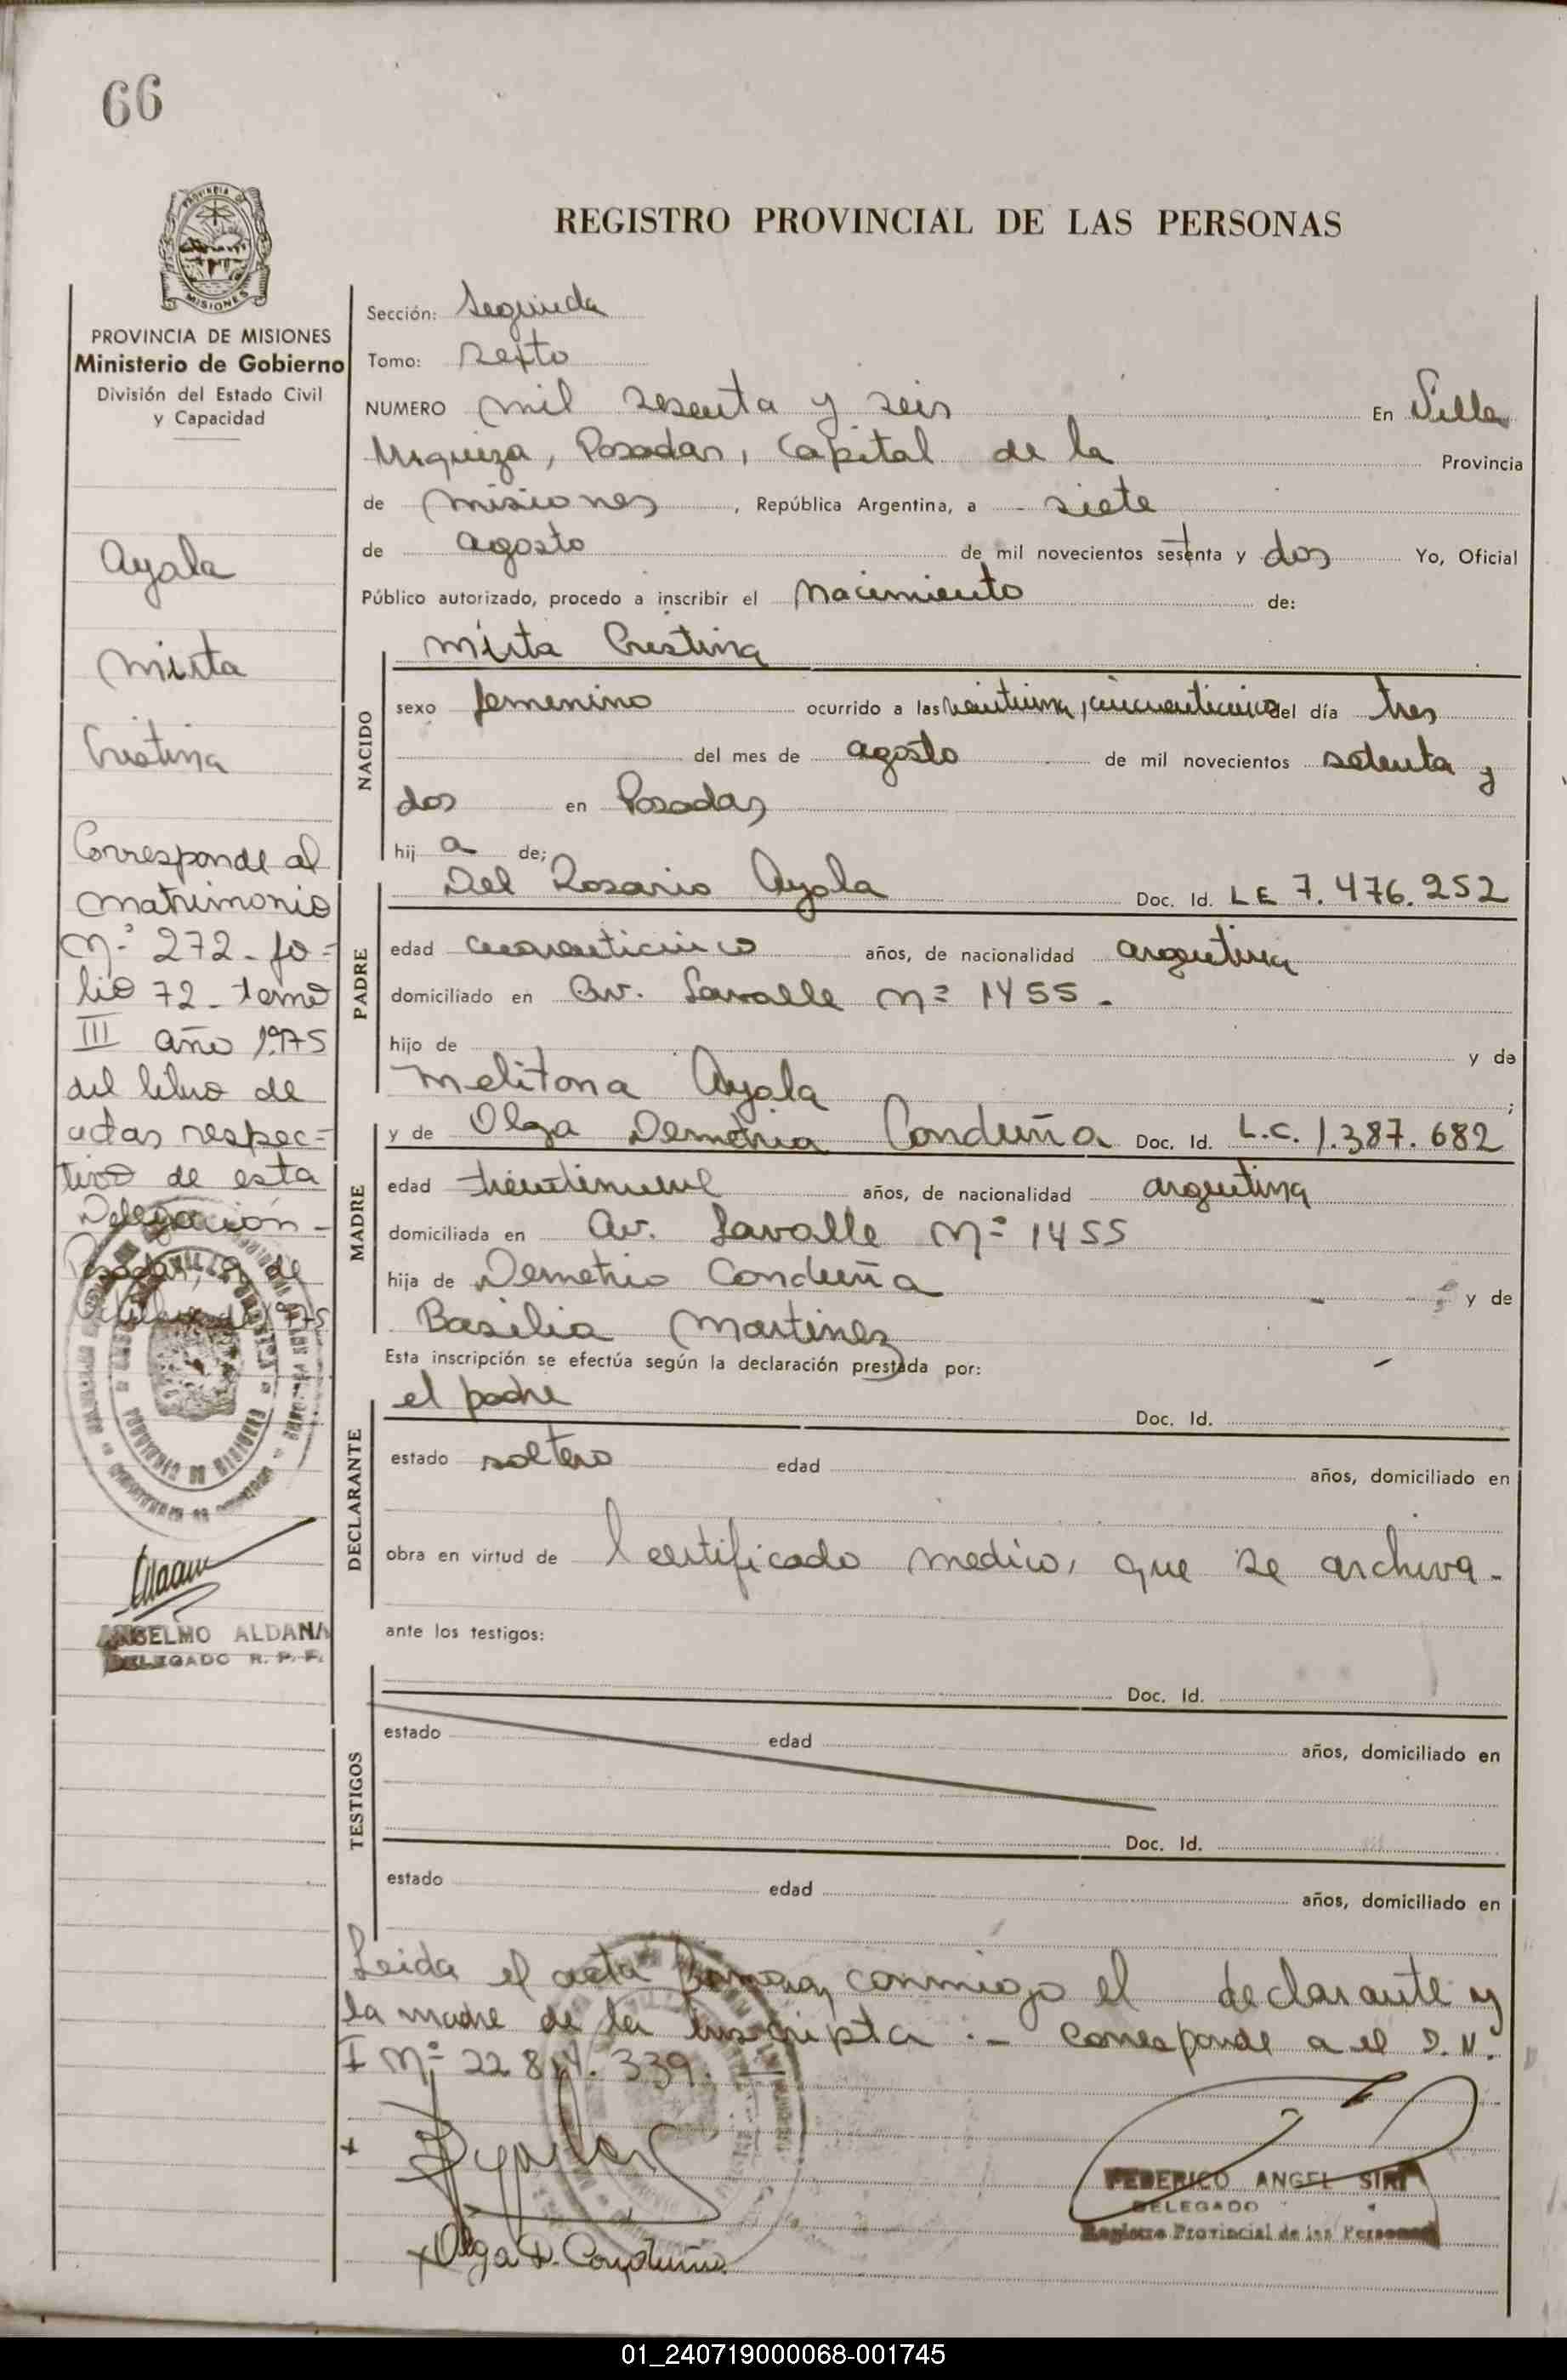 66
PROVINCIA DE
MISIONES
REGISTRO PROVINCIAL DE LAS PERSONAS
PROVINCIA DE MISIONES
Ministerio de Gobierno
División del Estado Civil
y Capacidad
Ayala
Mirta
Cristina
Corresponde al
matrimonio
Nº 272 - fo=
lio 72 - tomo
III año 1975
del libro de
actas respec=
tivo de esta
Delegación -
Posadas, de
de 1975
ANSELMO ALDANA
DELEGADO R. P. P.
Sección: Segunda
Tomo: Sexto
NUMERO mil sesenta y seis En Villa
Urquiza, Posadas, Capital de la Provincia
de Misiones, República Argentina, a siete
de agosto de mil novecientos setenta y dos Yo, Oficial
Público autorizado, procedo a inscribir el Nacimiento de:
Mirta Cristina
NACIDO
sexo femenino ocurrido a las veintiuna, cincuenticinco del día tres
del mes de agosto de mil novecientos setenta y
dos en Posadas
hija de;
PADRE
Del Rosario Ayala Doc. Id. LE 7.476.252
edad cuarenticinco años, de nacionalidad argentina
domiciliado en Av. Lavalle Nº 1455 -
hijo de y de
Melitona Ayala ;
MADRE
y de Olga Demetria Conduña Doc. Id. L.C. 1.387.682
edad treintinueve años, de nacionalidad argentina
domiciliada en Av. Lavalle Nº 1455
hija de Demetrio Conduña y de
Basilia Martinez
Esta inscripción se efectúa según la declaración prestada por:
DECLARANTE
el padre Doc. Id.
estado soltero edad años, domiciliado en
obra en virtud de certificado medico, que se archiva -
ante los testigos:
TESTIGOS
Doc. Id.
estado edad años, domiciliado en
Doc. Id.
estado edad años, domiciliado en
Leida el acta firman conmigo el declarante y
la madre de la inscripta .- Corresponde a el D.N.
I Nº 22.814.339.
Olga D. Conduña
FEDERICO ANGEL SIRI
DELEGADO
Registro Provincial de las Personas
01_240719000068-001745